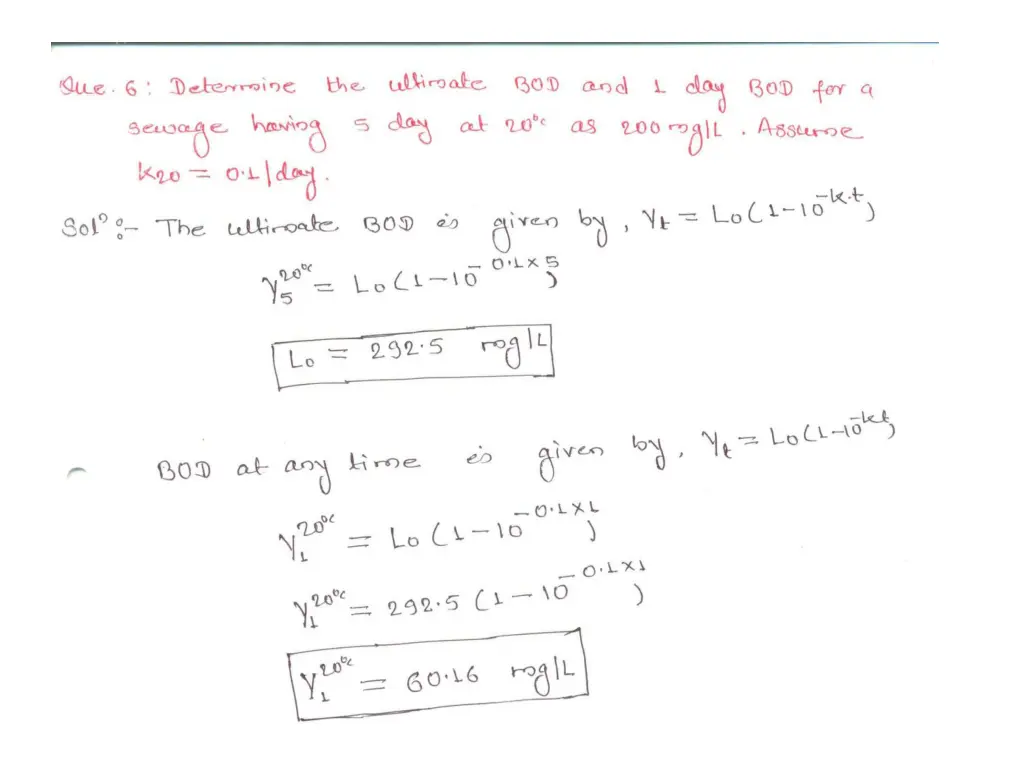 Que. 6: Determine the ultimate BOD and 1 day BOD for a
sewage having 5 day at 20°c as 200 mg/L. Assume
K20 = 0.1/day.
Solⁿ:- The ultimate BOD is given by, Yt = Lo(1-10^-k.t)
Y5^20°c = Lo(1-10^-0.1×5)
Lo = 292.5 mg/L
BOD at any time is given by, Yt = Lo(1-10^-kt)
Y1^20°c = Lo(1-10^-0.1×1)
Y1^20°c = 292.5(1-10^-0.1×1)
Y1^20°c = 60.16 mg/L